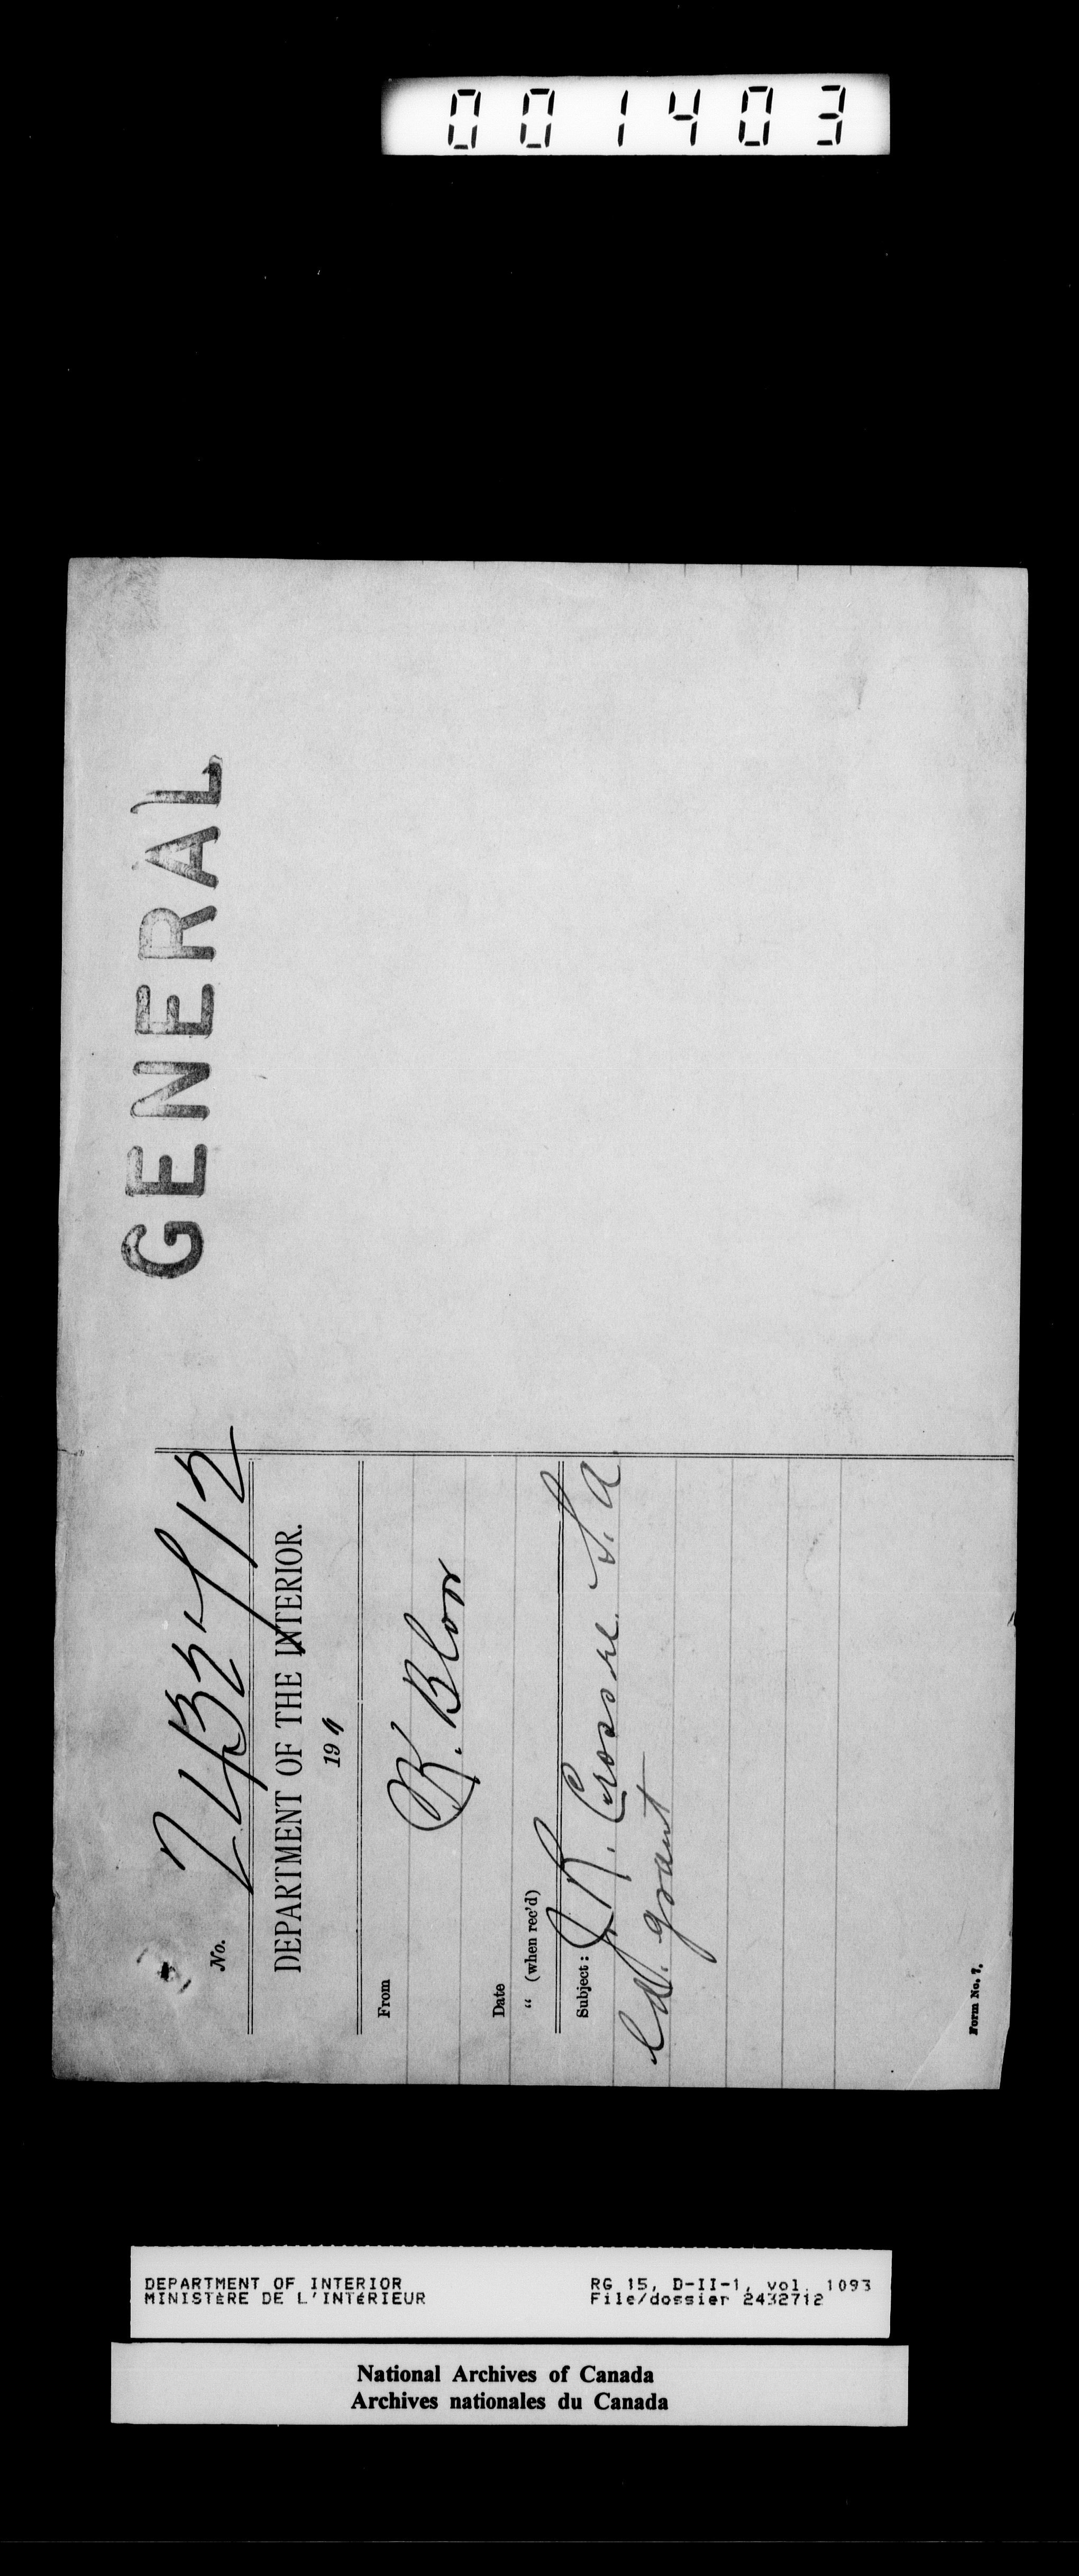 001403
GENERAL
No. 2432712
DEPARTMENT OF THE INTERIOR.
191
From R. Bloor
Date
" (when rec'd)
Subject: J. R. Crosse. S. A
Ld. grant
Form No. 7.
DEPARTMENT OF INTERIOR
MINISTÈRE DE L'INTÉRIEUR
RG 15, D-II-1, vol. 1093
File/dossier 2432712
National Archives of Canada
Archives nationales du Canada